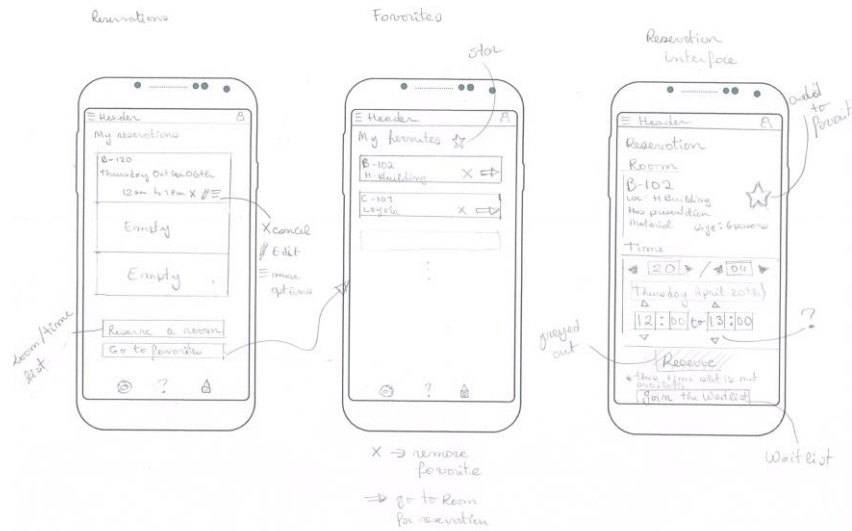 Reservations
Header
My reservations
B-120
Thursday October 06th
12 am to 1 pm X
Empty
Empty
Reserve a room
Go to favorites
?
X cancel
Edit
more
options
Room/time
list
Favorites
star
Header
My favorites
B-102
H-Building X
C-107
Loyola X
?
X → remove
favorite
⇒ go to Room
for reservation
Reservation
interface
Header
Reservation
Room
B-102
Loc: H Building
Has presentation
material size: 6 persons
add to
favorit
Time
20 / 04
Thursday April 20th
12 : 00 to 13 : 00
?
greyed
out
Reserve
* this time slot is not
available
Join the Waitlist
Wait list